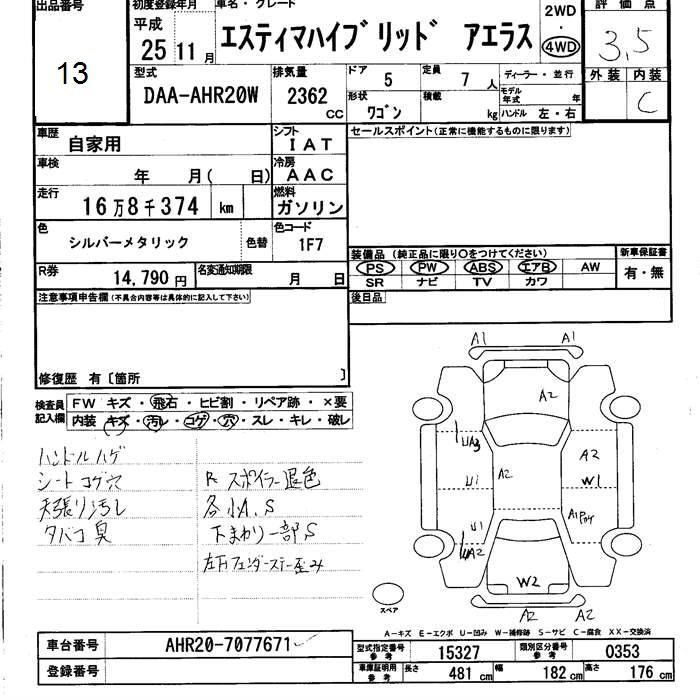 出品番号
13
初度登録年月
平成
25 11月
車名・グレード
エスティマハイブリッド アエラス
2WD
・
4WD
評価点
3.5
外装 内装
C
型式
DAA-AHR20W
排気量
2362
CC
ドア 5
定員 7 人
形状 ワゴン
積載 kg
ディーラー・並行
モデル年式 年
ハンドル 左・右
車歴 自家用
シフト IAT
車検 年 月( 日)
冷房 AAC
走行 16万8千374 km
燃料 ガソリン
色 シルバーメタリック 色替
色コード 1F7
R券 14,790円
名変通知期限 月 日
セールスポイント(正常に機能するものに限ります)
装備品 (純正品に限り○をつけてください)
PS PW ABS エアB AW
SR ナビ TV カワ
新車保証書
有・無
後日品
注意事項申告欄(不具合内容等は具体的に記入して下さい)
修復歴 有〔箇所 〕
検査員記入欄
FW キズ・飛石・ヒビ割・リペア跡・×要
内装 キズ・汚レ・コゲ・穴・スレ・キレ・破レ
ハンドルハゲ
シートコゲ穴
天張り汚レ
タバコ臭
R スポイラー退色
各小A,S
下まわり一部S
左Fフェンダーステー歪み
A1 A1
A2
UA3
A2
U1 A2 W1
U1
A1
A2
W2
A2 A2
スペア
A-キズ E-エクボ U-凹み W-補修跡 S-サビ C-腐食 XX-交換済
車台番号 AHR20-7077671
登録番号
型式指定番号 参考 15327
類別区分番号 参考 0353
車庫証明用 参考 長さ 481cm 幅 182cm 高さ 176cm